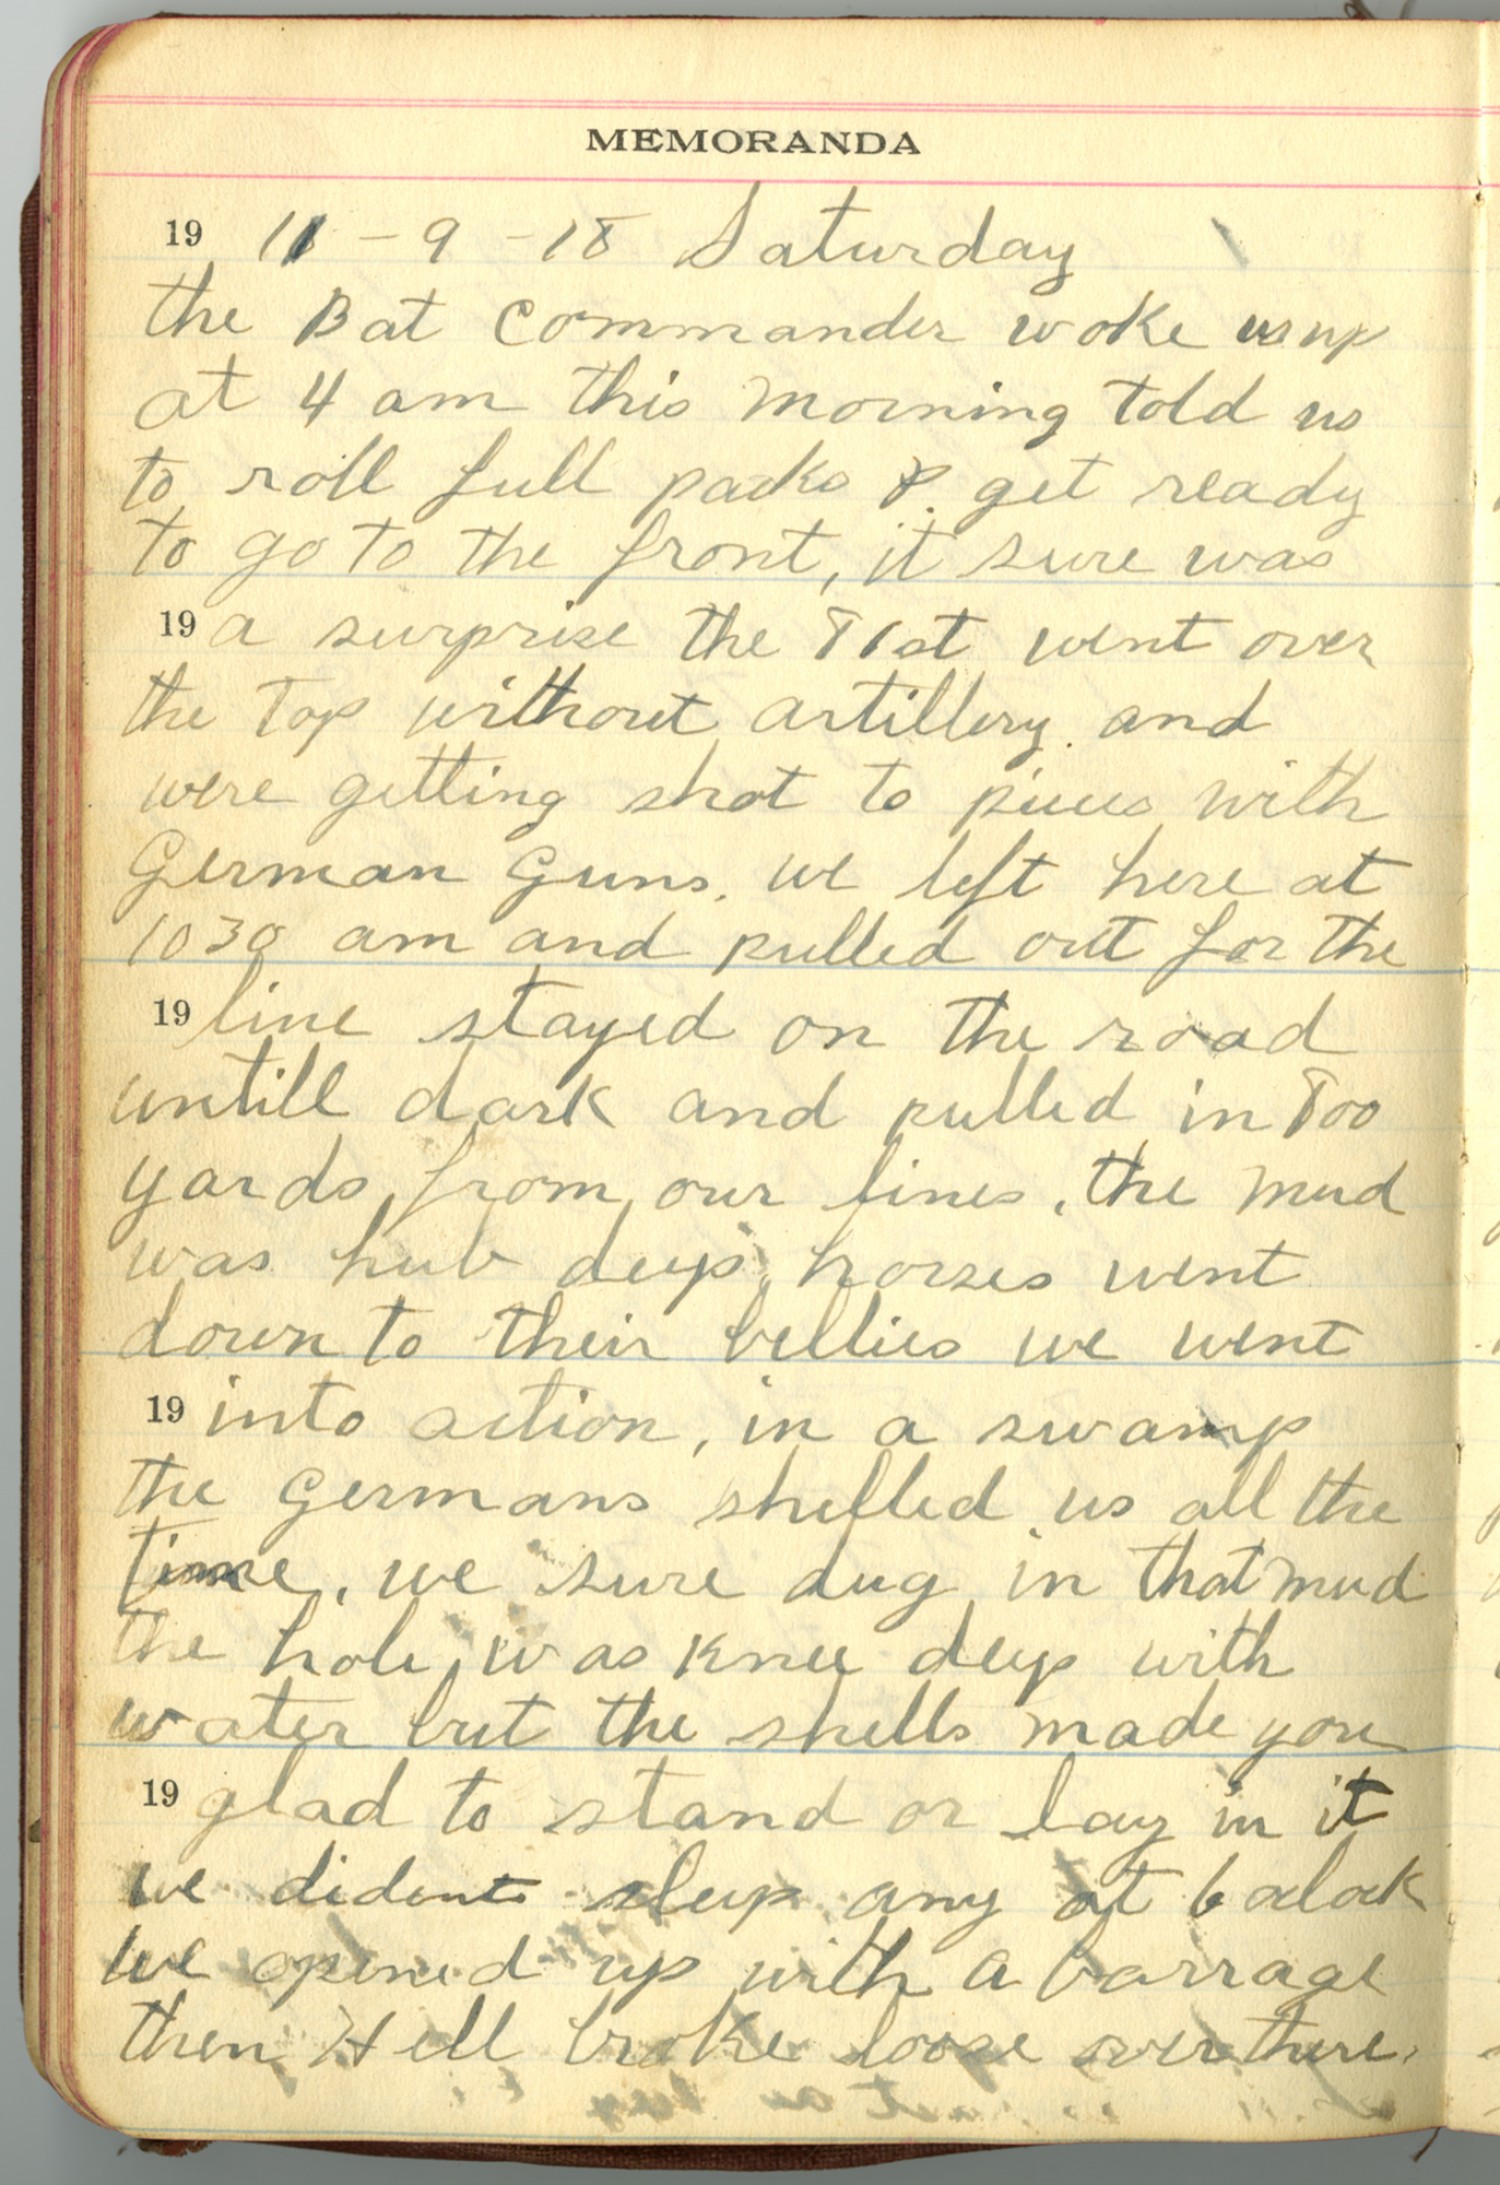 MEMORANDA
19 11-9-18 Saturday
the Bat Commander woke us up
at 4 am this morning told us
to roll full packs & get ready
to go to the front, it sure was
19 a surprise the 81st went over
the Top without artillery and
were getting shot to pieces with
German Guns. we left here at
1030 am and pulled out for the
19 line stayed on the road
untill dark and pulled in 800
yards from our lines, the mud
was hub deep, horses went
down to their bellies we went
19 into action, in a swamp
the Germans shelled us all the
time, we sure dug in that mud
the hole was knee deep with
water but the shells made you
19 glad to stand or lay in it
we dident sleep any at 6 oclock
we opened up with a barrage
then Hell broke loose over there.